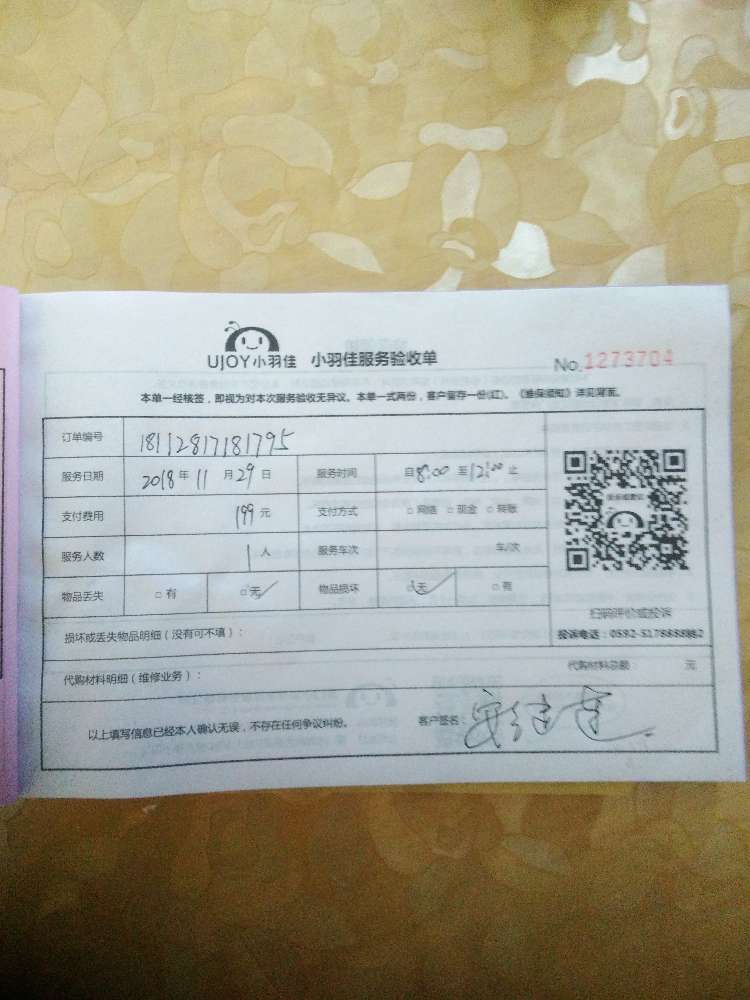 UJOY小羽佳 小羽佳服务验收单 No.1273704
本单一经核签，即视为对本次服务验收无异议。本单一式两份，客户留存一份(红)。《维保须知》详见背面。
订单编号 18112817181795
服务日期 2018年11月29日 服务时间 自8:00至12:00止
支付费用 199元 支付方式 □网络 □现金 □转账
服务人数 1人 服务车次 车/次
物品丢失 □有 □无✓ 物品损坏 □无✓ □有
扫码评价或投诉
损坏或丢失物品明细（没有可不填）： 投诉电话：0592-5178888转2
代购材料明细（维修业务）： 代购材料总额 元
以上填写信息已经本人确认无误，不存在任何争议纠纷。 客户签名：